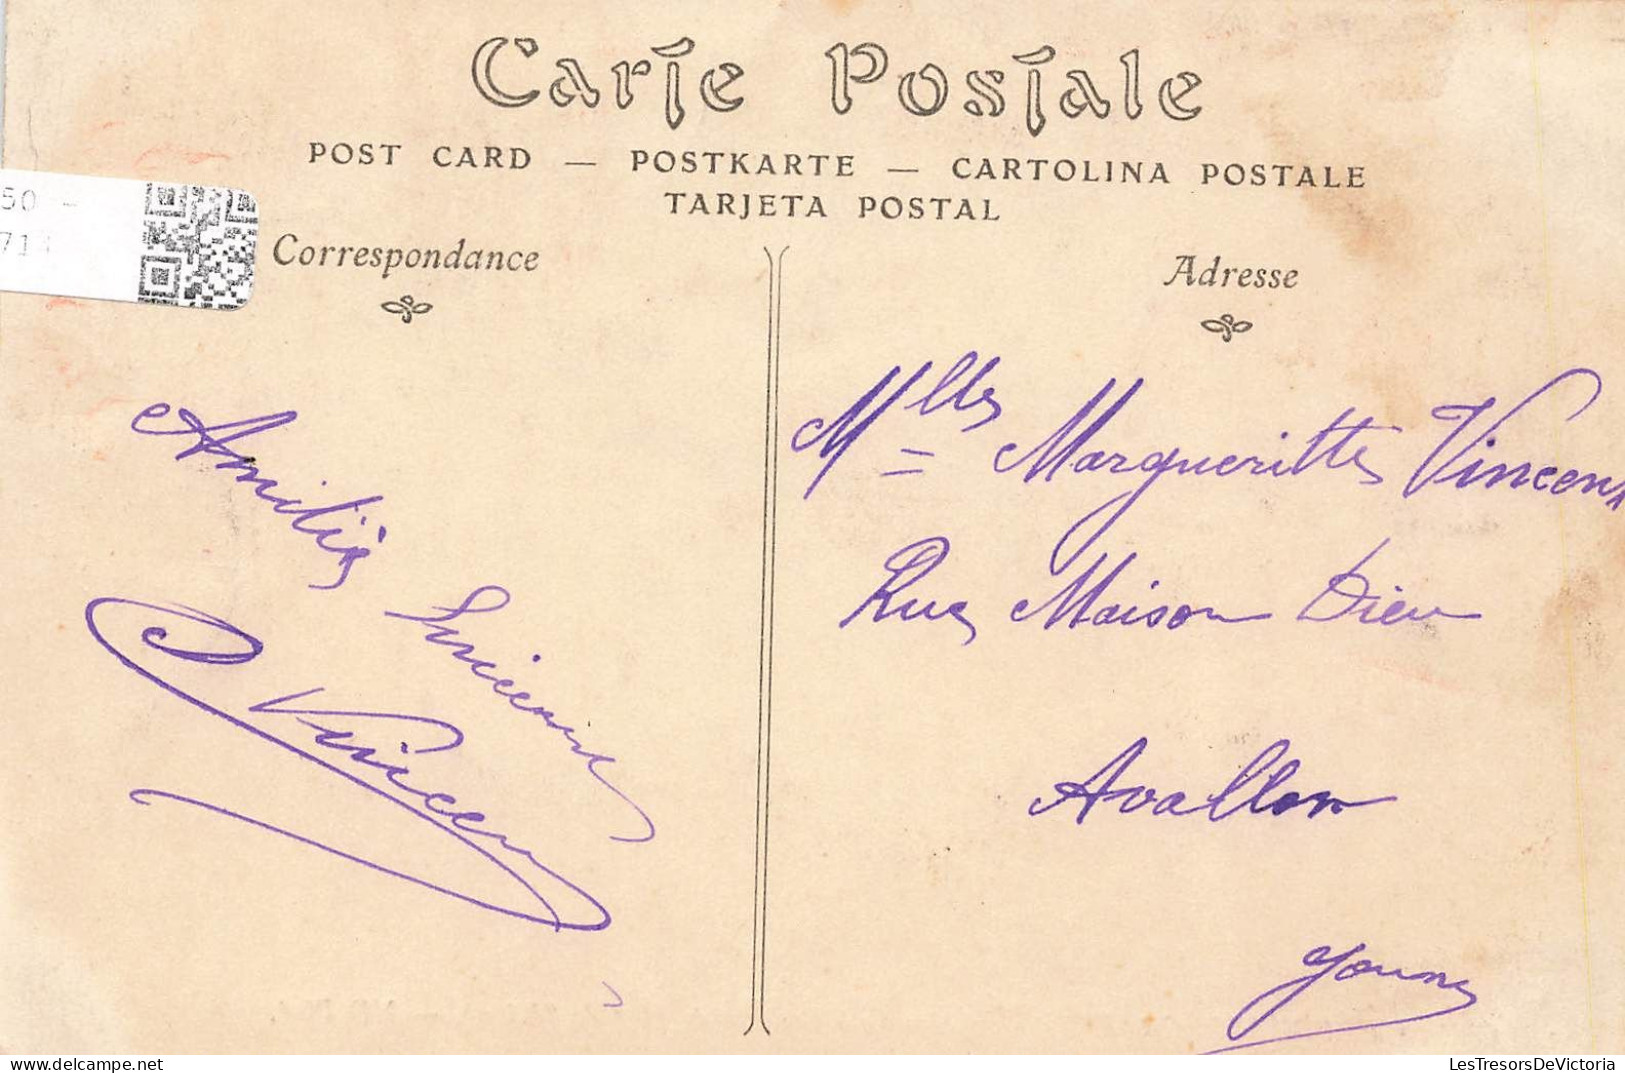 Carte Postale
POST CARD — POSTKARTE — CARTOLINA POSTALE
TARJETA POSTAL
50 -
71
Correspondance
Adresse
Amitiés
Vincent
Mlle Margueritte Vincent
Rue Maison Dieu
Avallon
Yonne
LesTresorsDeVictoria